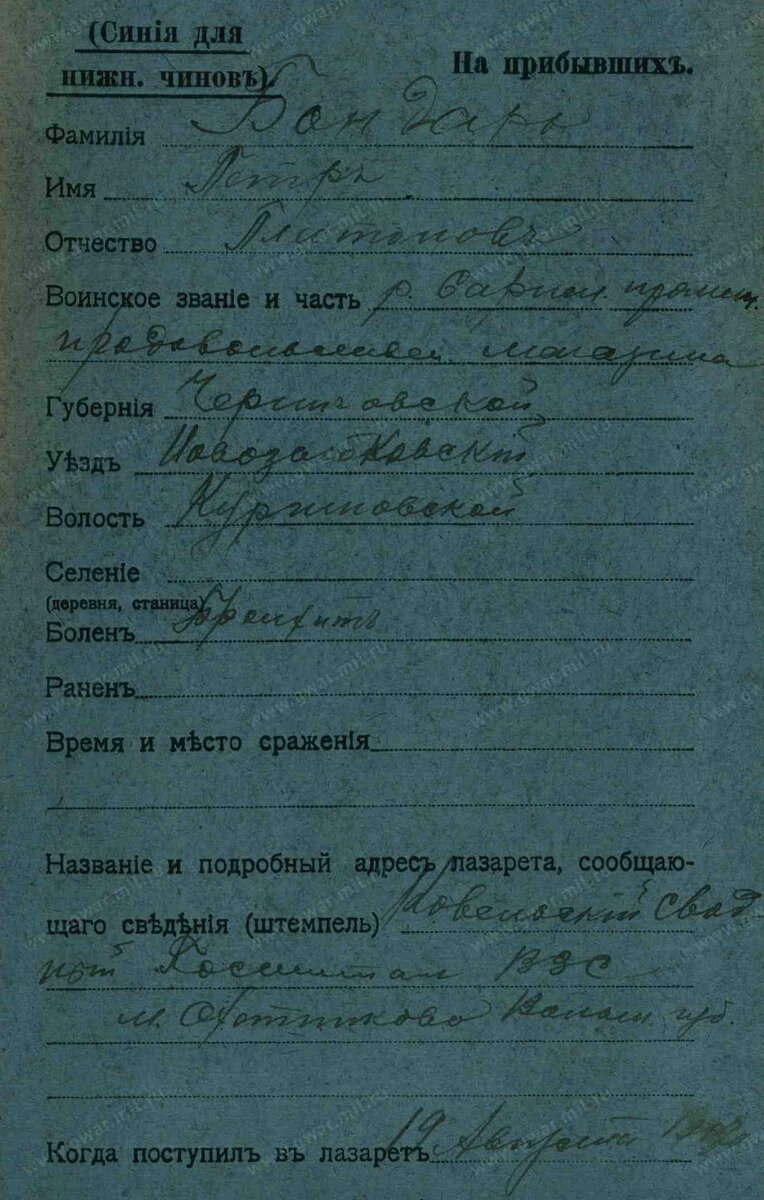 (Синія для
нижн. чиновъ).
На прибывшихъ.
Фамилія Бондарь
Имя Петръ
Отчество Платоновъ
Воинское званіе и часть р. Сарнен.
продовольствен. магазина
Губернія Черниговской
Уѣздъ Новозыбковскій
Волость
Селеніе
(деревня, станица)
Боленъ Бронхитъ
Раненъ
Время и мѣсто сраженія
Названіе и подробный адресъ лазарета, сообщаю-
щаго свѣдѣнія (штемпель) Ковельскій Свод
ный Госпиталь ВЗС
м. Волын. губ.
Когда поступилъ въ лазаретъ 19 Августа
www.gwar.mil.ru